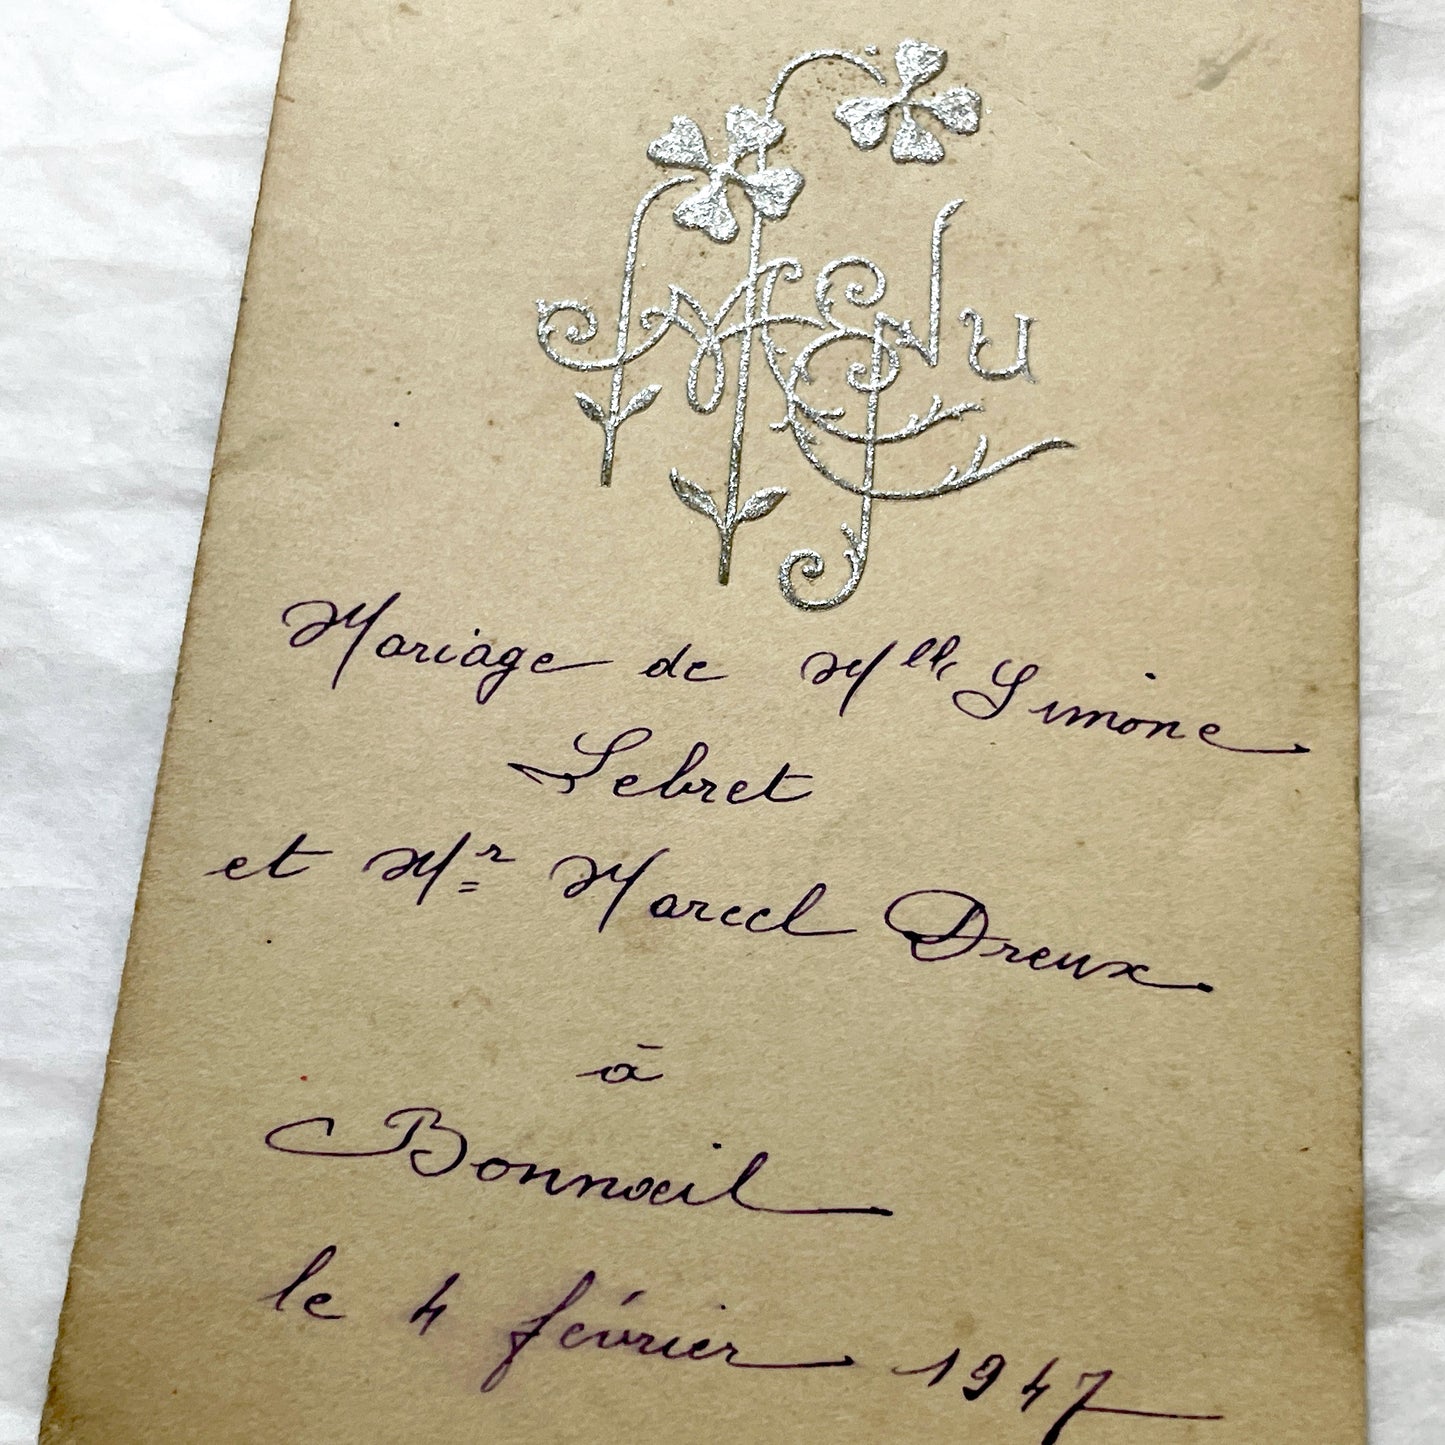 MENU
Mariage de Mlle Simone
Lebret
et Mr Marcel Dreux
à
Bonnœil
le 4 février 1947